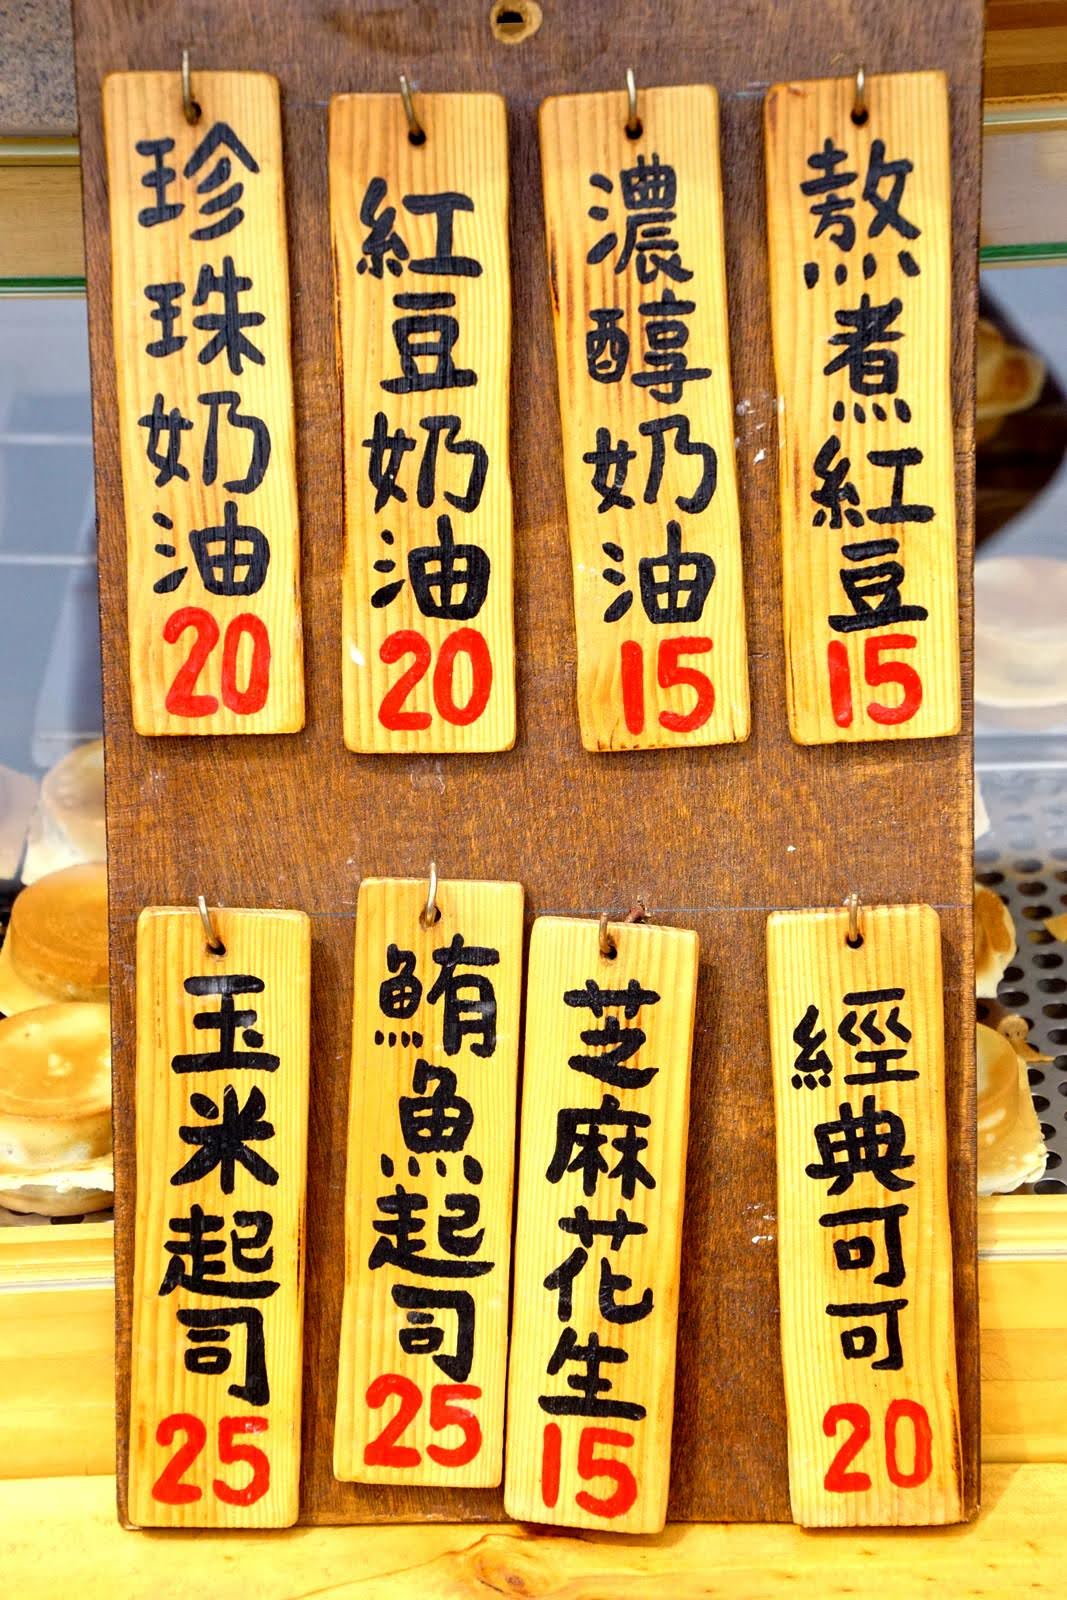 珍珠奶油20
紅豆奶油20
濃醇奶油15
熬煮紅豆15
玉米起司25
鮪魚起司25
芝麻花生15
經典可可20